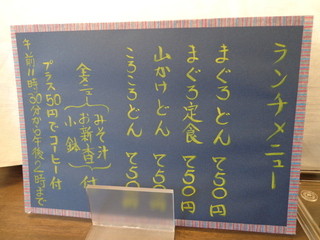 ランチメニュー
まぐろどん 750円
まぐろ定食 750円
山かけどん 750円
ころころどん 750円
全メニュー みそ汁 お新香 小鉢 付
プラス50円でコーヒー付
午前11時30分から午後2時まで